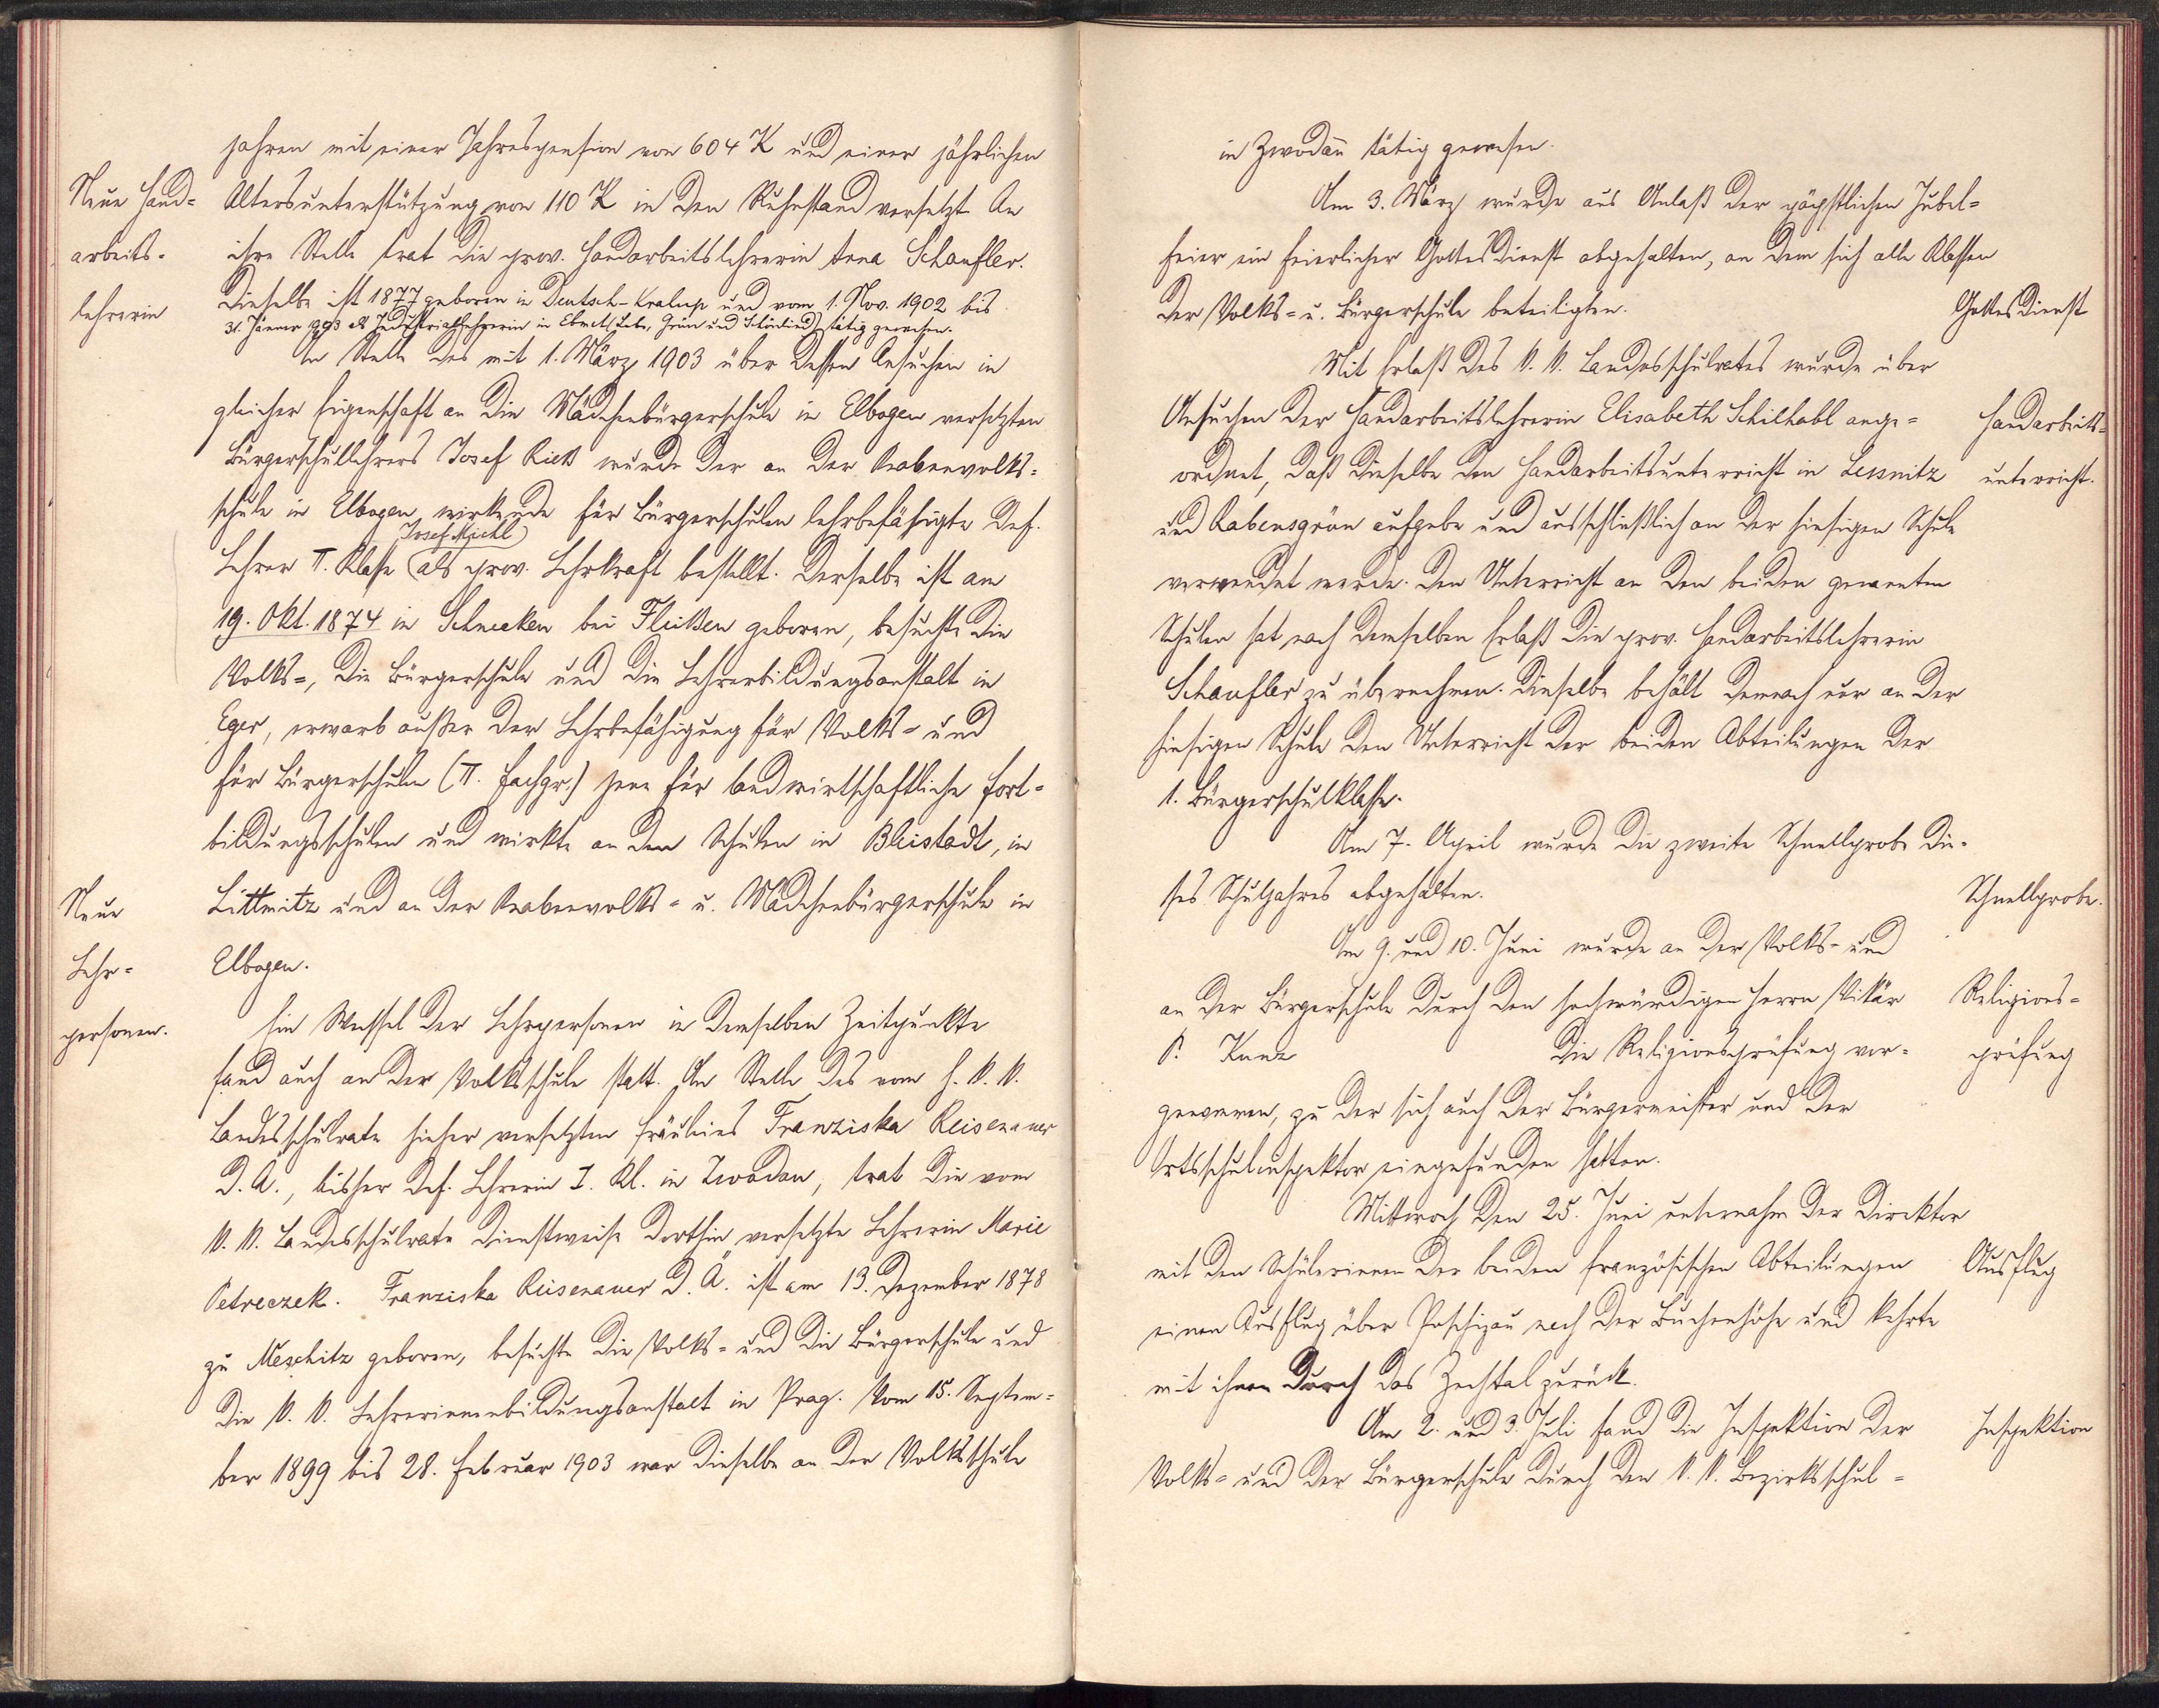 jahren mit einer Jahrespension von 604 K und einer jährlichen
Neue Hand=
Altersunterstützung von 110 K in den Ruhestand versetzt. An
arbeits-
ihre Stelle trat die prov. Handarbeitslehrerin Anna Schaufler.
lehrerin
Dieselbe ist 1877 geboren in Deutsch-Kralup und vom 1. Nov. 1902 bis
31. Jänner 1903 als Industriallehrerin in Grün und tätig gewesen.
An Stelle des mit 1. März 1903 über dessen Ansuchen in
gleicher Eigenschaft an die Mädchenbürgerschule in Elbogen versetzten
Bürgerschullehrers Josef Rieß wurde der an der Knabenvolks=
schule in Elbogen wirkende für Bürgerschulen lehrbefähigte def.
Josef Michl
Lehrer II. Klasse als prov. Lehrkraft bestellt. Derselbe ist am
19. Okt. 1874 in Schnecken bei Fleißen geboren, besuchte die
Volks=, die Bürgerschule und die Lehrerbildungsanstalt in
Eger, erwarb außer der Lehrbefähigung für Volks= und
für Bürgerschulen (II. Fachgr.) jene für landwirtschaftliche Fort=
bildungsschulen und wirkte an den Schulen in Bleistadt, in
Neue
Littmitz und an der Knabenvolks= u. Mädchenbürgerschule in
Lehr=
Elbogen.
personen.
Ein Wechsel der Lehrpersonen in demselben Zeitpunkte
fand auch an der Volksschule statt. An Stelle des vom h. k. k.
Landesschulrate hieher versetzten Fräuleins Franziska Reisenauer
d. Ä., bisher def. Lehrerin I. Kl. in Zwodau, trat die vom
k. k. Landesschulrate dienstweise dorthin versetzte Lehrerin Marie
Petreczek. Franziska Reisenauer d. Ä. ist am 13. Dezember 1878
zu Meschitz geboren, besuchte die Volks= und die Bürgerschule und
die k. k. Lehrerinnenbildungsanstalt in Prag. Vom 15. Septem=
ber 1899 bis 28. Februar 1903 war dieselbe an der Volksschule
in Zwodau tätig gewesen.
Am 3. März wurde aus Anlaß der päpstlichen Jubel=
feier ein feierlicher Gottesdienst abgehalten, an dem sich alle Klassen
der Volks= u. Bürgerschule beteiligten.
Gottesdienst
Mit Erlaß des k. k. Landesschulrates wurde über
Ansuchen der Handarbeitslehrerin Elisabeth Schilhabl ange=
Handarbeits=
ordnet, daß dieselbe den Handarbeitsunterricht in Lessnitz
unterricht.
und Rabensgrün aufgebe und ausschließlich an der hiesigen Schule
verwendet werde. Den Unterricht an den beiden genannten
Schulen hat nach demselben Erlaß die prov. Handarbeitslehrerin
Schaufler zu übernehmen. Dieselbe behält demnach nur an der
hiesigen Schule den Unterricht der beiden Abteilungen der
1. Bürgerschulklasse.
Am 7. April wurde die zweite Schnellprobe die=
ses Schuljahres abgehalten.
Schnellprobe.
Am 9. und 10. Juni wurde an der Volks= und
an der Bürgerschule durch den hochwürdigen Herrn Vikär
Religions=
P. Kunz die Religionsprüfung vor=
prüfung
genommen, zu der sich auch der Bürgermeister und der
Ortsschulinspektor eingefunden hatten.
Mittwoch den 25. Juni unternahm der Direktor
mit den Schülerinnen der beiden französischen Abteilungen
Ausflug
einen Ausflug über Poschizau nach der Buchenhöhe und kehrte
mit ihnen durch das Zechtal zurück.
Am 2. und 3. Juli fand die Inspektion der
Inspektion
Volks= und der Bürgerschule durch den k. k. Bezirksschul=